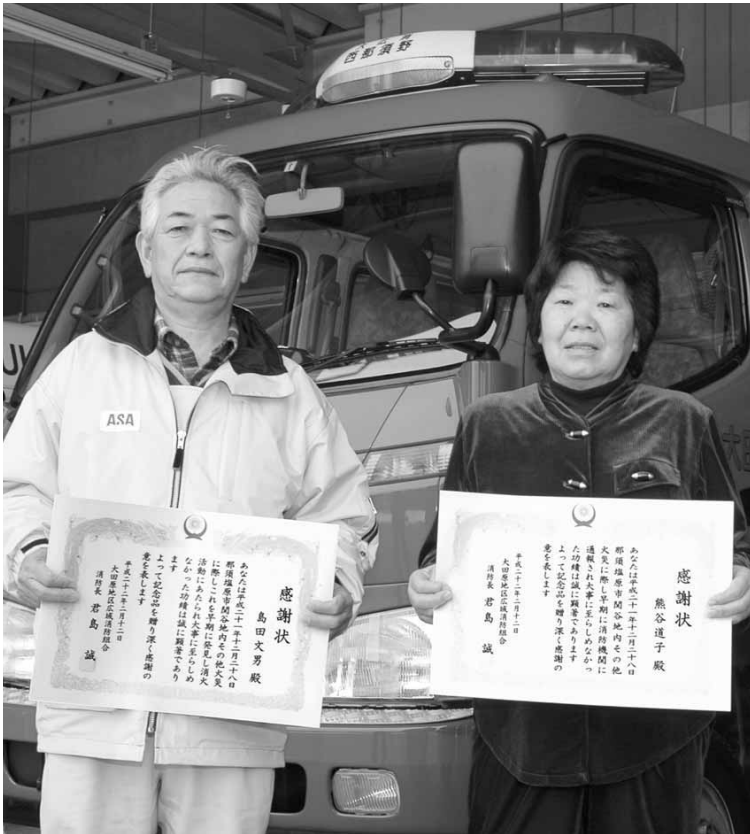 西那須野
ASA
感謝状
島田文男 殿
あなたは平成二十一年十二月二十八日
那須塩原市関谷地内その他火災
に際しこれを早期に発見し消火
活動にあたられ大事に至らしめ
なかった功績は誠に顕著であり
ます
よって記念品を贈り深く感謝の
意を表します
平成二十二年二月十二日
大田原地区広域消防組合
消防長 君島 誠
感謝状
熊谷道子 殿
あなたは平成二十一年十二月二十八日
那須塩原市関谷地内その他
火災に際し早期に消防機関に
通報され大事に至らしめなかっ
た功績は誠に顕著であります
よって記念品を贈り深く感謝の
意を表します
平成二十二年二月十二日
大田原地区広域消防組合
消防長 君島 誠